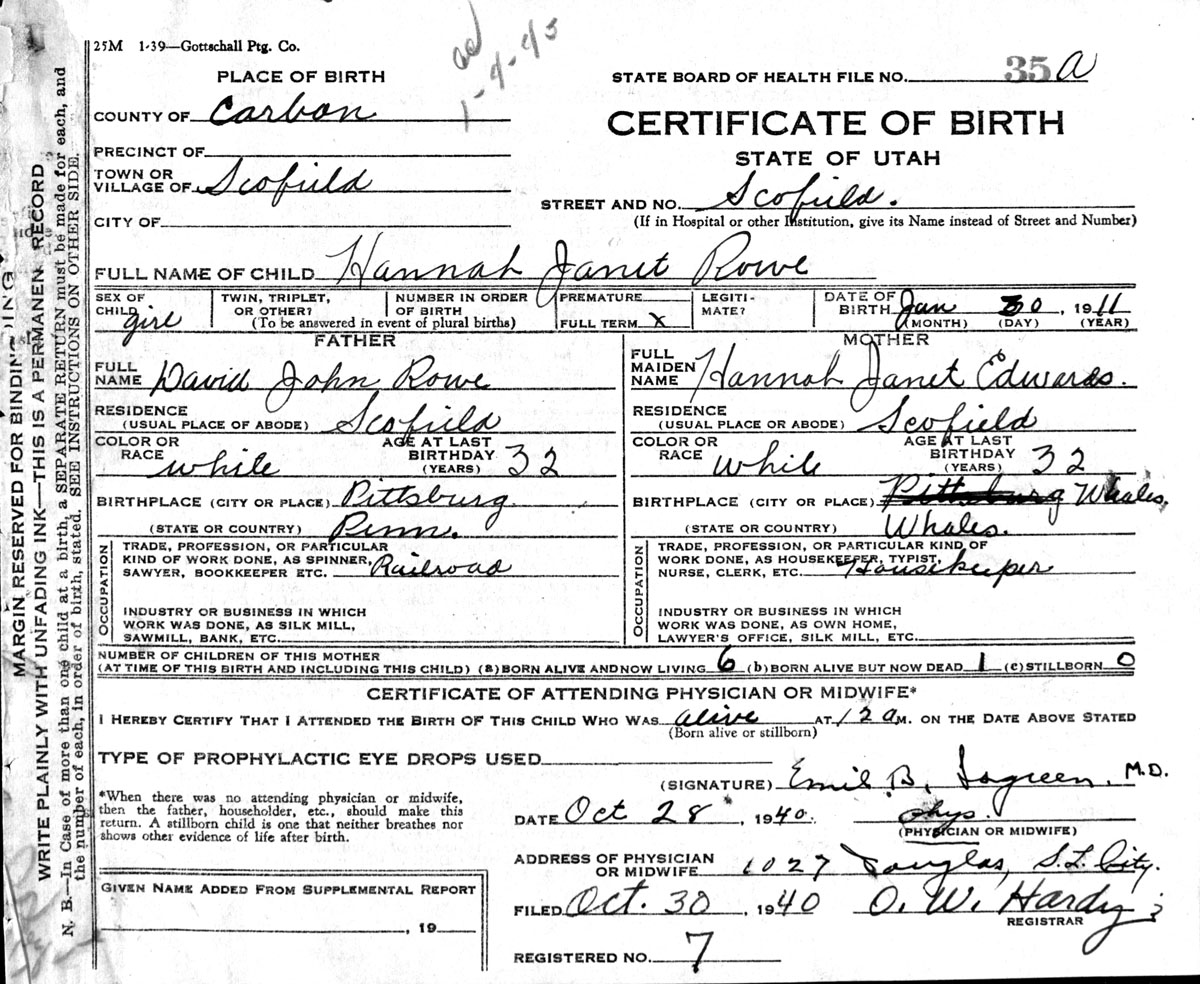 25M 1-39—Gottschall Ptg. Co.
ad
1-4-43
PLACE OF BIRTH
STATE BOARD OF HEALTH FILE NO. 35 a
COUNTY OF Carbon
CERTIFICATE OF BIRTH
PRECINCT OF
STATE OF UTAH
TOWN OR VILLAGE OF Scofield
STREET AND NO. Scofield.
CITY OF
(If in Hospital or other Institution, give its Name instead of Street and Number)
FULL NAME OF CHILD Hannah Janet Rowe
SEX OF CHILD girl
TWIN, TRIPLET, OR OTHER?
NUMBER IN ORDER OF BIRTH
(To be answered in event of plural births)
PREMATURE
FULL TERM X
LEGITI-
MATE?
DATE OF BIRTH Jan 30, 1911
(MONTH) (DAY) (YEAR)
FATHER
FULL NAME David John Rowe
RESIDENCE (USUAL PLACE OF ABODE) Scofield
COLOR OR RACE white
AGE AT LAST BIRTHDAY (YEARS) 32
BIRTHPLACE (CITY OR PLACE) Pittsburg
(STATE OR COUNTRY) Penn.
OCCUPATION
TRADE, PROFESSION, OR PARTICULAR
KIND OF WORK DONE, AS SPINNER,
SAWYER, BOOKKEEPER ETC. Railroad
INDUSTRY OR BUSINESS IN WHICH
WORK WAS DONE, AS SILK MILL,
SAWMILL, BANK, ETC.
MOTHER
FULL MAIDEN NAME Hannah Janet Edwards.
RESIDENCE (USUAL PLACE OR ABODE) Scofield
COLOR OR RACE White
AGE AT LAST BIRTHDAY (YEARS) 32
BIRTHPLACE (CITY OR PLACE) Pittsburg Whales,
(STATE OR COUNTRY) Whales.
OCCUPATION
TRADE, PROFESSION, OR PARTICULAR KIND OF
WORK DONE, AS HOUSEKEEPER, TYPIST,
NURSE, CLERK, ETC. Housekeeper
INDUSTRY OR BUSINESS IN WHICH
WORK WAS DONE, AS OWN HOME,
LAWYER'S OFFICE, SILK MILL, ETC.
NUMBER OF CHILDREN OF THIS MOTHER
(AT TIME OF THIS BIRTH AND INCLUDING THIS CHILD) (a) BORN ALIVE AND NOW LIVING 6 (b) BORN ALIVE BUT NOW DEAD 1 (c) STILLBORN 0
CERTIFICATE OF ATTENDING PHYSICIAN OR MIDWIFE*
I HEREBY CERTIFY THAT I ATTENDED THE BIRTH OF THIS CHILD WHO WAS alive AT 12 a M. ON THE DATE ABOVE STATED
(Born alive or stillborn)
TYPE OF PROPHYLACTIC EYE DROPS USED
(SIGNATURE) Emil B. Isgreen, M.D.
*When there was no attending physician or midwife,
then the father, householder, etc., should make this
return. A stillborn child is one that neither breathes nor
shows other evidence of life after birth.
DATE Oct 28, 1940. phys.
(PHYSICIAN OR MIDWIFE)
ADDRESS OF PHYSICIAN OR MIDWIFE 1027 Douglas, S.L. City.
GIVEN NAME ADDED FROM SUPPLEMENTAL REPORT
, 19
FILED Oct. 30, 1940 O. W. Hardy
REGISTRAR
REGISTERED NO. 7
MARGIN RESERVED FOR BINDING
WRITE PLAINLY WITH UNFADING INK—THIS IS A PERMANEN. RECORD
N. B.—In Case of more than one child at a birth, a SEPARATE RETURN must be made for each, and
the number of each, in order of birth, stated. SEE INSTRUCTIONS ON OTHER SIDE.